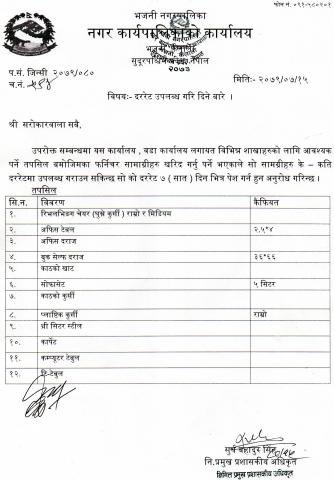 फोन नं. ०९१-५८०१०१
भजनी नगरपालिका
नगर कार्यपालिकाको कार्यालय
भजनी कैलाली
सुदूरपश्चिम प्रदेश नेपाल
२०७३
प.सं. जिन्सी २०७९/०८०
मितिः- २०७९/०७/१५
च.नं.
विषयः- दररेट उपलब्ध गरि दिने बारे ।
श्री सरोकारवाला सबै,
उपरोक्त सम्बन्धमा यस कार्यालय , वडा कार्यालय लगायत विभिन्न शाखाहरुको लागि आवश्यक
पर्ने तपसिल बमोजिमका फर्निचर सामाग्रीहरु खरिद गर्नु पर्ने भएकाले सो सामग्रहरु के – कति
दररेटमा उपलब्ध गराउन सकिन्छ सो को दररेट ७ ( सात ) दिन भित्र पेश गर्न हुन अनुरोध गरिन्छ ।
तपसिल
सि.न. विवरण कैफियत
१. रिभल्भिङग चेयर (घुम्ने कुर्सी ) राम्रो र मिडियम
२. अफिस टेबल २.५*४
३. अफिस दराज
४. बुक सेल्फ दराज ३६*६६
५. काठको खाट
६. सोफासेट ५ सिटर
७. काठको कुर्सी
८. प्लाष्टिक कुर्सी राम्रो
९. थ्री सिटर स्टील
१०. कार्पेट
११. कम्प्युटर टेबुल
१२. टि-टेबुल
नि.प्रमुख प्रशासकीय अधिकृत
निमित्त प्रमुख प्रशासकीय अधिकृत